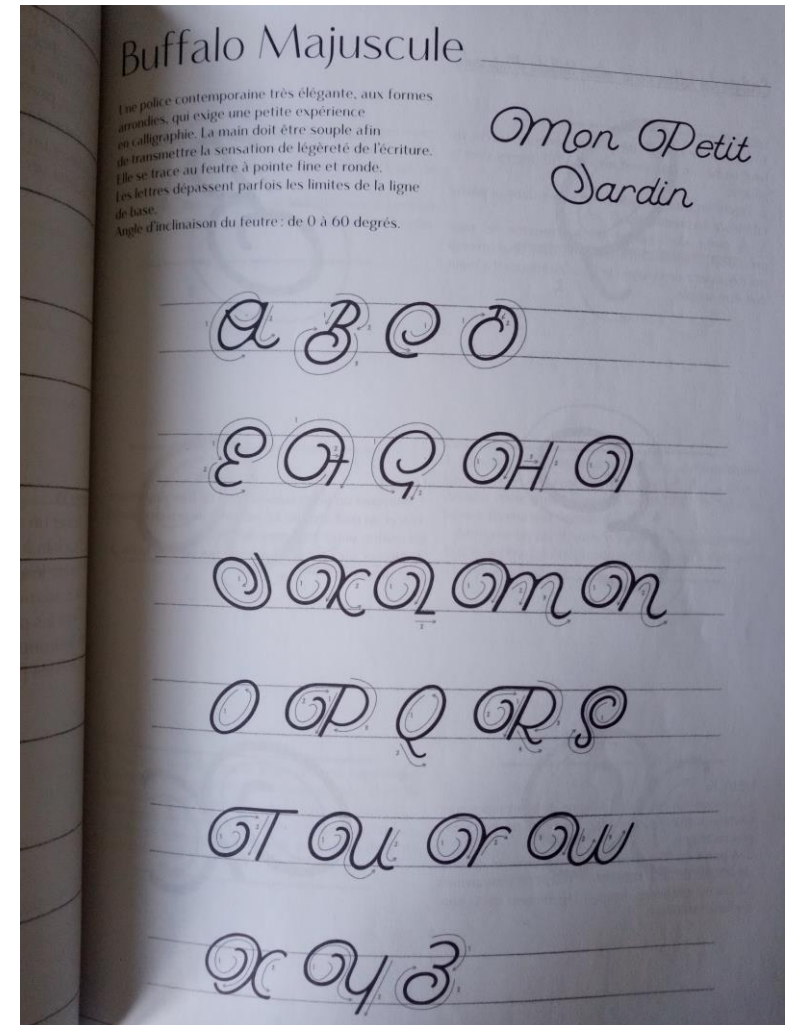 Buffalo Majuscule
Une police contemporaine très élégante, aux formes
arrondies, qui exige une petite expérience
en calligraphie. La main doit être souple afin
de transmettre la sensation de légèreté de l'écriture.
Elle se trace au feutre à pointe fine et ronde.
Les lettres dépassent parfois les limites de la ligne
de base.
Angle d'inclinaison du feutre : de 0 à 60 degrés.
Mon Petit
Jardin
A B C D
E F G H I
J K L M N
O P Q R S
T U V W
X Y Z